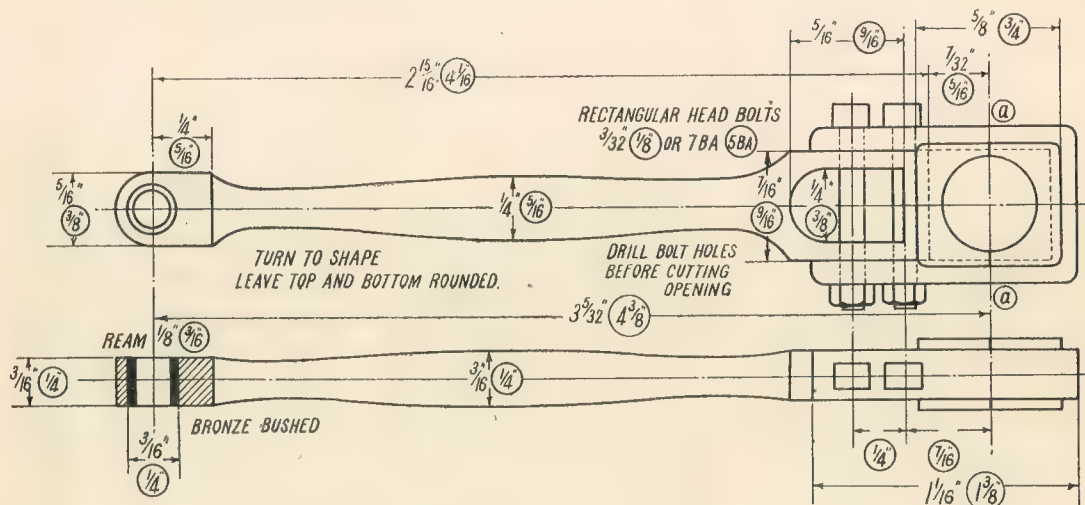 5/16" 9/16"
5/8" 3/4"
2 15/16" 4 1/16"
7/32"
5/16"
RECTANGULAR HEAD BOLTS
3/32" 1/8" OR 7BA 5BA
a
1/4"
5/16"
5/16"
3/8"
1/4" 5/16"
7/16"
9/16"
1/4"
3/8"
TURN TO SHAPE
LEAVE TOP AND BOTTOM ROUNDED.
DRILL BOLT HOLES
BEFORE CUTTING
OPENING
a
3 5/32" 4 3/8"
REAM 1/8" 3/16"
3/16" 1/4"
3/16" 1/4"
BRONZE BUSHED
3/16"
1/4"
1/4" 7/16"
1 1/16" 1 3/8"